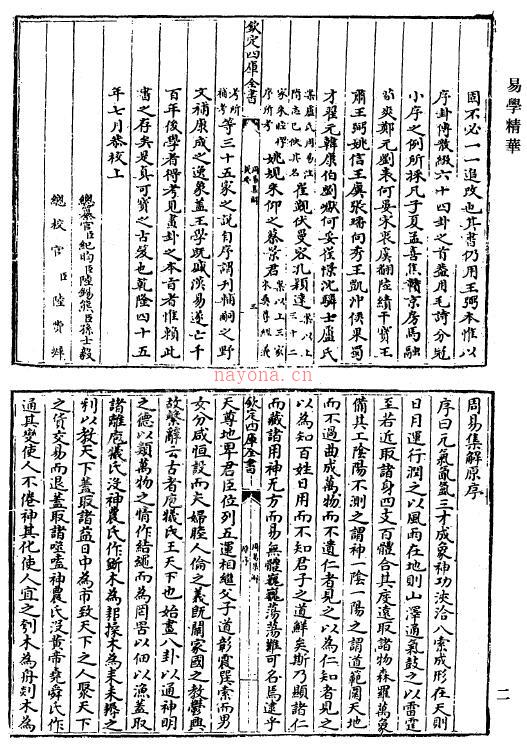 易學精華
固不必一一追改也其書仍用王弼本惟以
序卦傳散綴六十四卦之首蓋用毛詩分冠
小序之例所採凡子夏孟喜焦贛京房馬融
荀爽鄭元劉表何晏宋衷虞翻陸績干寶王
肅王弼姚信王廙張璠向秀王凱沖侯果蜀
才翟元韓康伯劉巘何妥崔憬沈驎士盧氏
崔覲伏曼容孔穎達
姚規朱仰之蔡景君
等三十五家之說自序謂刋輔嗣之野
文補康成之逸象蓋王學既盛漢易遂亡千
百年後學者得考見畫卦之本旨者惟賴此
書之存矣是真可寶之古笈也乾隆四十五
年七月恭校上
總纂官臣紀昀臣陸錫熊臣孫士毅
總校官臣陸費墀
欽定四庫全書
周易集解
提要
三
nayona.cn
周易集解原序
序曰元氣氤氳三才成象神功浹洽八索成形在天則
日月運行潤之以風雨在地則山澤通氣鼓之以雷霆
至若近取諸身四支百體合其度遠取諸物森羅萬象
備其工陰陽不測之謂神一陰一陽之謂道範圍天地
而不過曲成萬物而不遺仁者見之以為仁知者見之
以為知百姓日用而不知君子之道鮮矣斯乃顯諸仁
而藏諸用神无方而易無體巍巍蕩蕩難可名焉逮乎
天尊地卑君臣位列五運相繼父子道彰震巽索而男
女分咸恒設而夫婦睦人倫之義既闡家國之教鬱興
故繫辭云古者庖犧氏王天下也始畫八卦以通神明
之德以類萬物之情作結繩而為罔罟以佃以漁蓋取
諸離庖犧氏沒神農氏作斲木為耜揉木為耒耒耨之
利以教天下蓋取諸益日中為市致天下之人聚天下
之貨交易而退蓋取諸噬嗑神農氏沒黃帝堯舜氏作
通其變使人不倦神其化使人宜之刳木為舟剡木為
欽定四庫全書
周易集解
原序
二